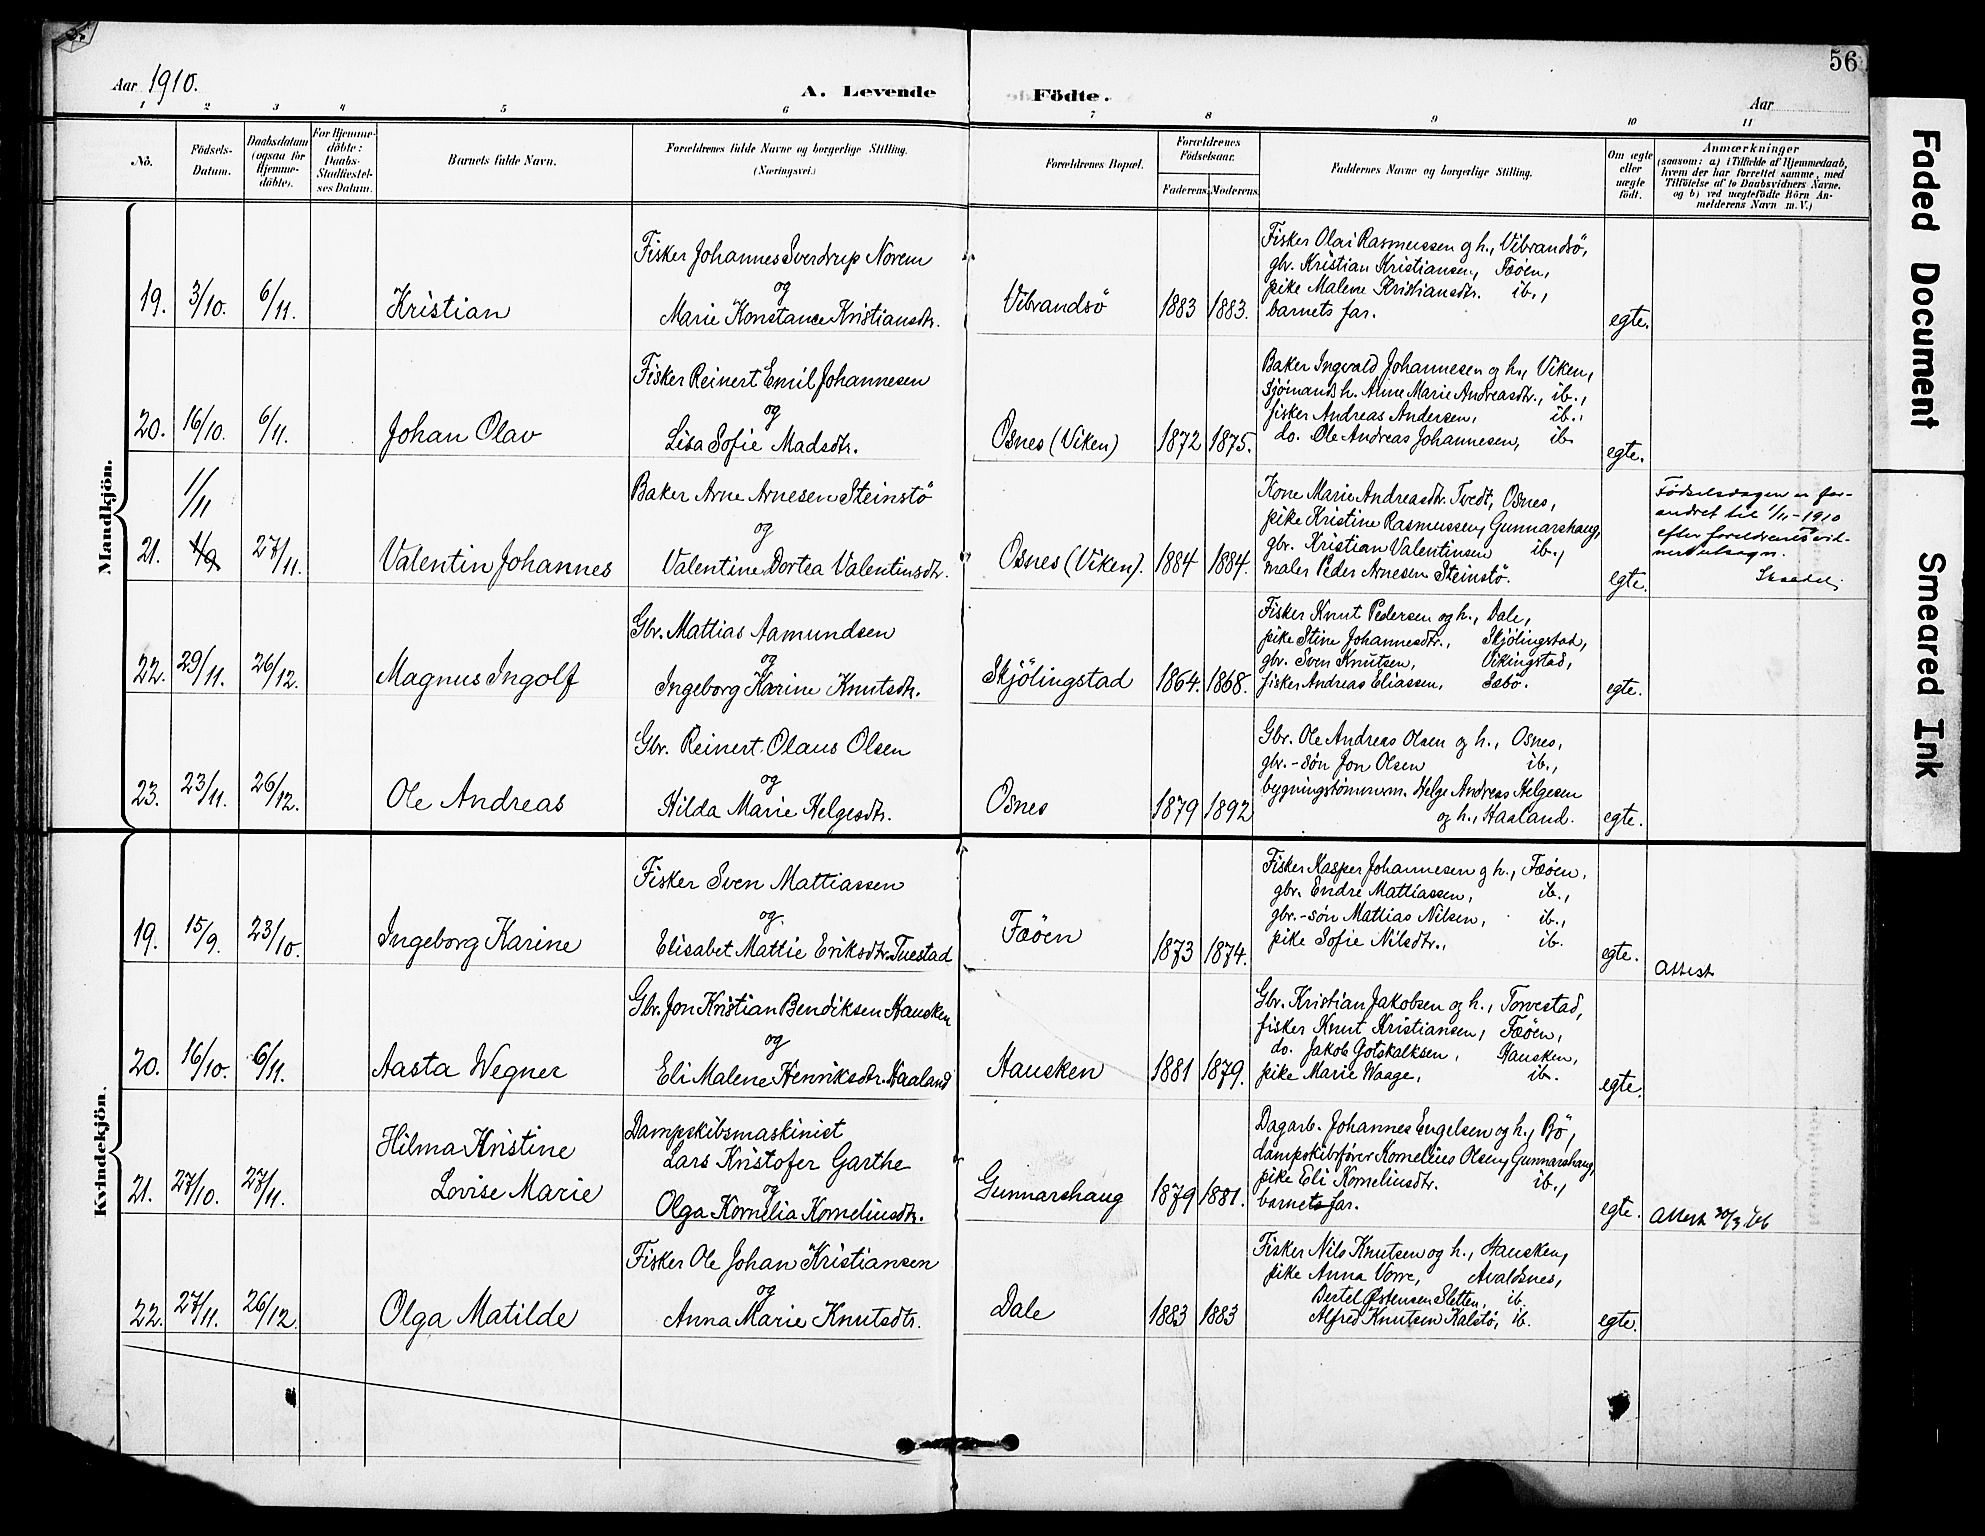 56
Aar 1910.
A. Levende
Födte.
Aar
1 2 3 4 5 6 7 8 9 10 11
No.
Födsels-
Datum.
Daabsdatum
(ogsaa for
Hjemme-
döbte).
For Hjemme-
döbte:
Daabs-
Stadfæstel-
ses Datum.
Barnets fulde Navn.
Forældrenes fulde Navne og borgerlige Stilling.
(Næringsvei.)
Forældrenes Bopæl.
Forældrenes
Födselsaar.
Faderens.
Moderens.
Faddernes Navne og borgerlige Stilling.
Om ægte
eller
uægte
födt.
Anmærkninger
(saasom: a) i Tilfælde af Hjemmedaab,
hvem der har forrettet samme, med
Tilföielse af to Daabsvidners Navne.
og b) ved uægtefödte Börn An-
melderens Navn m. V.)
Mandkjön.
19. 3/10. 6/11. Kristian
Fisker Johannes Sverdrup Norem
og
Marie Konstance Kristiansdtr.
Vibrandsö 1883 1883.
Fisker Olai Rasmussen og h., Vibrandsö,
gbr. Kristian Kristiansen, Føöen,
pike Malene Kristiansdtr. ib.,
barnets far.
egte.
20. 16/10. 6/11. Johan Olav
Fisker Reinert Emil Johannesen
og
Lisa Sofie Madsdtr.
Osnes (Viken) 1872 1875.
Baker Ingvald Johannesen og h., Viken,
sjömands h. Anne Marie Andreasdtr., ib.,
fisker Andreas Andersen, ib.,
do. Ole Andreas Johannesen, ib.
egte.
1/11
21. 1/9 27/11. Valentin Johannes
Baker Arne Arnesen Steinstö
og
Valentine Dortea Valentinsdtr.
Osnes (Viken). 1884 1884.
Kone Marie Andreasdtr. Tvedt, Osnes,
pike Kristine Rasmussen, Gunnarshaug,
gbr. Kristian Valentinsen ib.,
maler Peder Arnesen Steinstö.
egte.
Fødselsdagen er for-
andret til 1/11-1910
efter foreldrenes vid-
nesutsagn.
22. 29/11. 26/12. Magnus Ingolf
Gbr. Mattias Aamundsen
og
Ingeborg Karine Knutsdtr.
Skjölingstad 1864. 1868.
Fisker Knut Pedersen og h., Dale,
pike Stine Johannesdtr., Skjölingstad,
gbr. Sven Knutsen, Vikingstad,
fisker Andreas Eliassen, Sæbö.
egte.
23. 23/11. 26/12. Ole Andreas
Gbr. Reinert Olaus Olsen
og
Hilda Marie Helgesdtr.
Osnes 1879 1892
Gbr. Ole Andreas Olsen og h., Osnes,
gbr.-sön Jon Olsen ib.,
bygningstömmerm. Helge Andreas Helgesen
og h., Haaland.
egte.
Kvindekjön.
19. 15/9. 23/10. Ingeborg Karine
Fisker Sven Mattiassen
og
Elisabet Mattie Eriksdtr. Tuestad
Føöen 1873 1874.
Fisker Kasper Johannesen og h., Føöen,
gbr. Endre Mattiassen, ib.,
gbr.-sön Mattias Nilsen, ib.,
pike Sofie Nilsdtr., ib.
egte.
Attest
20. 16/10. 6/11. Aasta Wegner
Gbr. Jon Kristian Bendiksen Hausken
og
Eli Malene Henriksdtr. Haaland
Hausken 1881 1879.
Gbr. Kristian Jakobsen og h., Torvestad,
fisker Knut Kristiansen, Føöen,
do. Jakob Gotskalksen, Hausken,
pike Marie Waage, ib.
egte.
21. 27/10. 27/11. Hilma Kristine
Lovise Marie
Dampskibsmaskinist
Lars Kristofer Garthe
og
Olga Kornelia Korneliusdtr.
Gunnarshaug 1879 1881.
Dagarb. Johannes Engelsen og h., Bö,
dampskibsförer Kornelius Olsen, Gunnarshaug,
pike Eli Korneliusdtr. ib.,
barnets far.
egte.
Attest 30/3.66
22. 27/11. 26/12. Olga Matilde
Fisker Ole Johan Kristiansen
og
Anna Marie Knutsdtr.
Dale 1883 1883
Fisker Nils Knutsen og h., Hausken,
pike Anna Vorre, Avaldsnes,
Bertel Østensen Sletten, ib.
Alfred Knutsen Kalstö, ib.
egte.
Faded Document
Smeared Ink